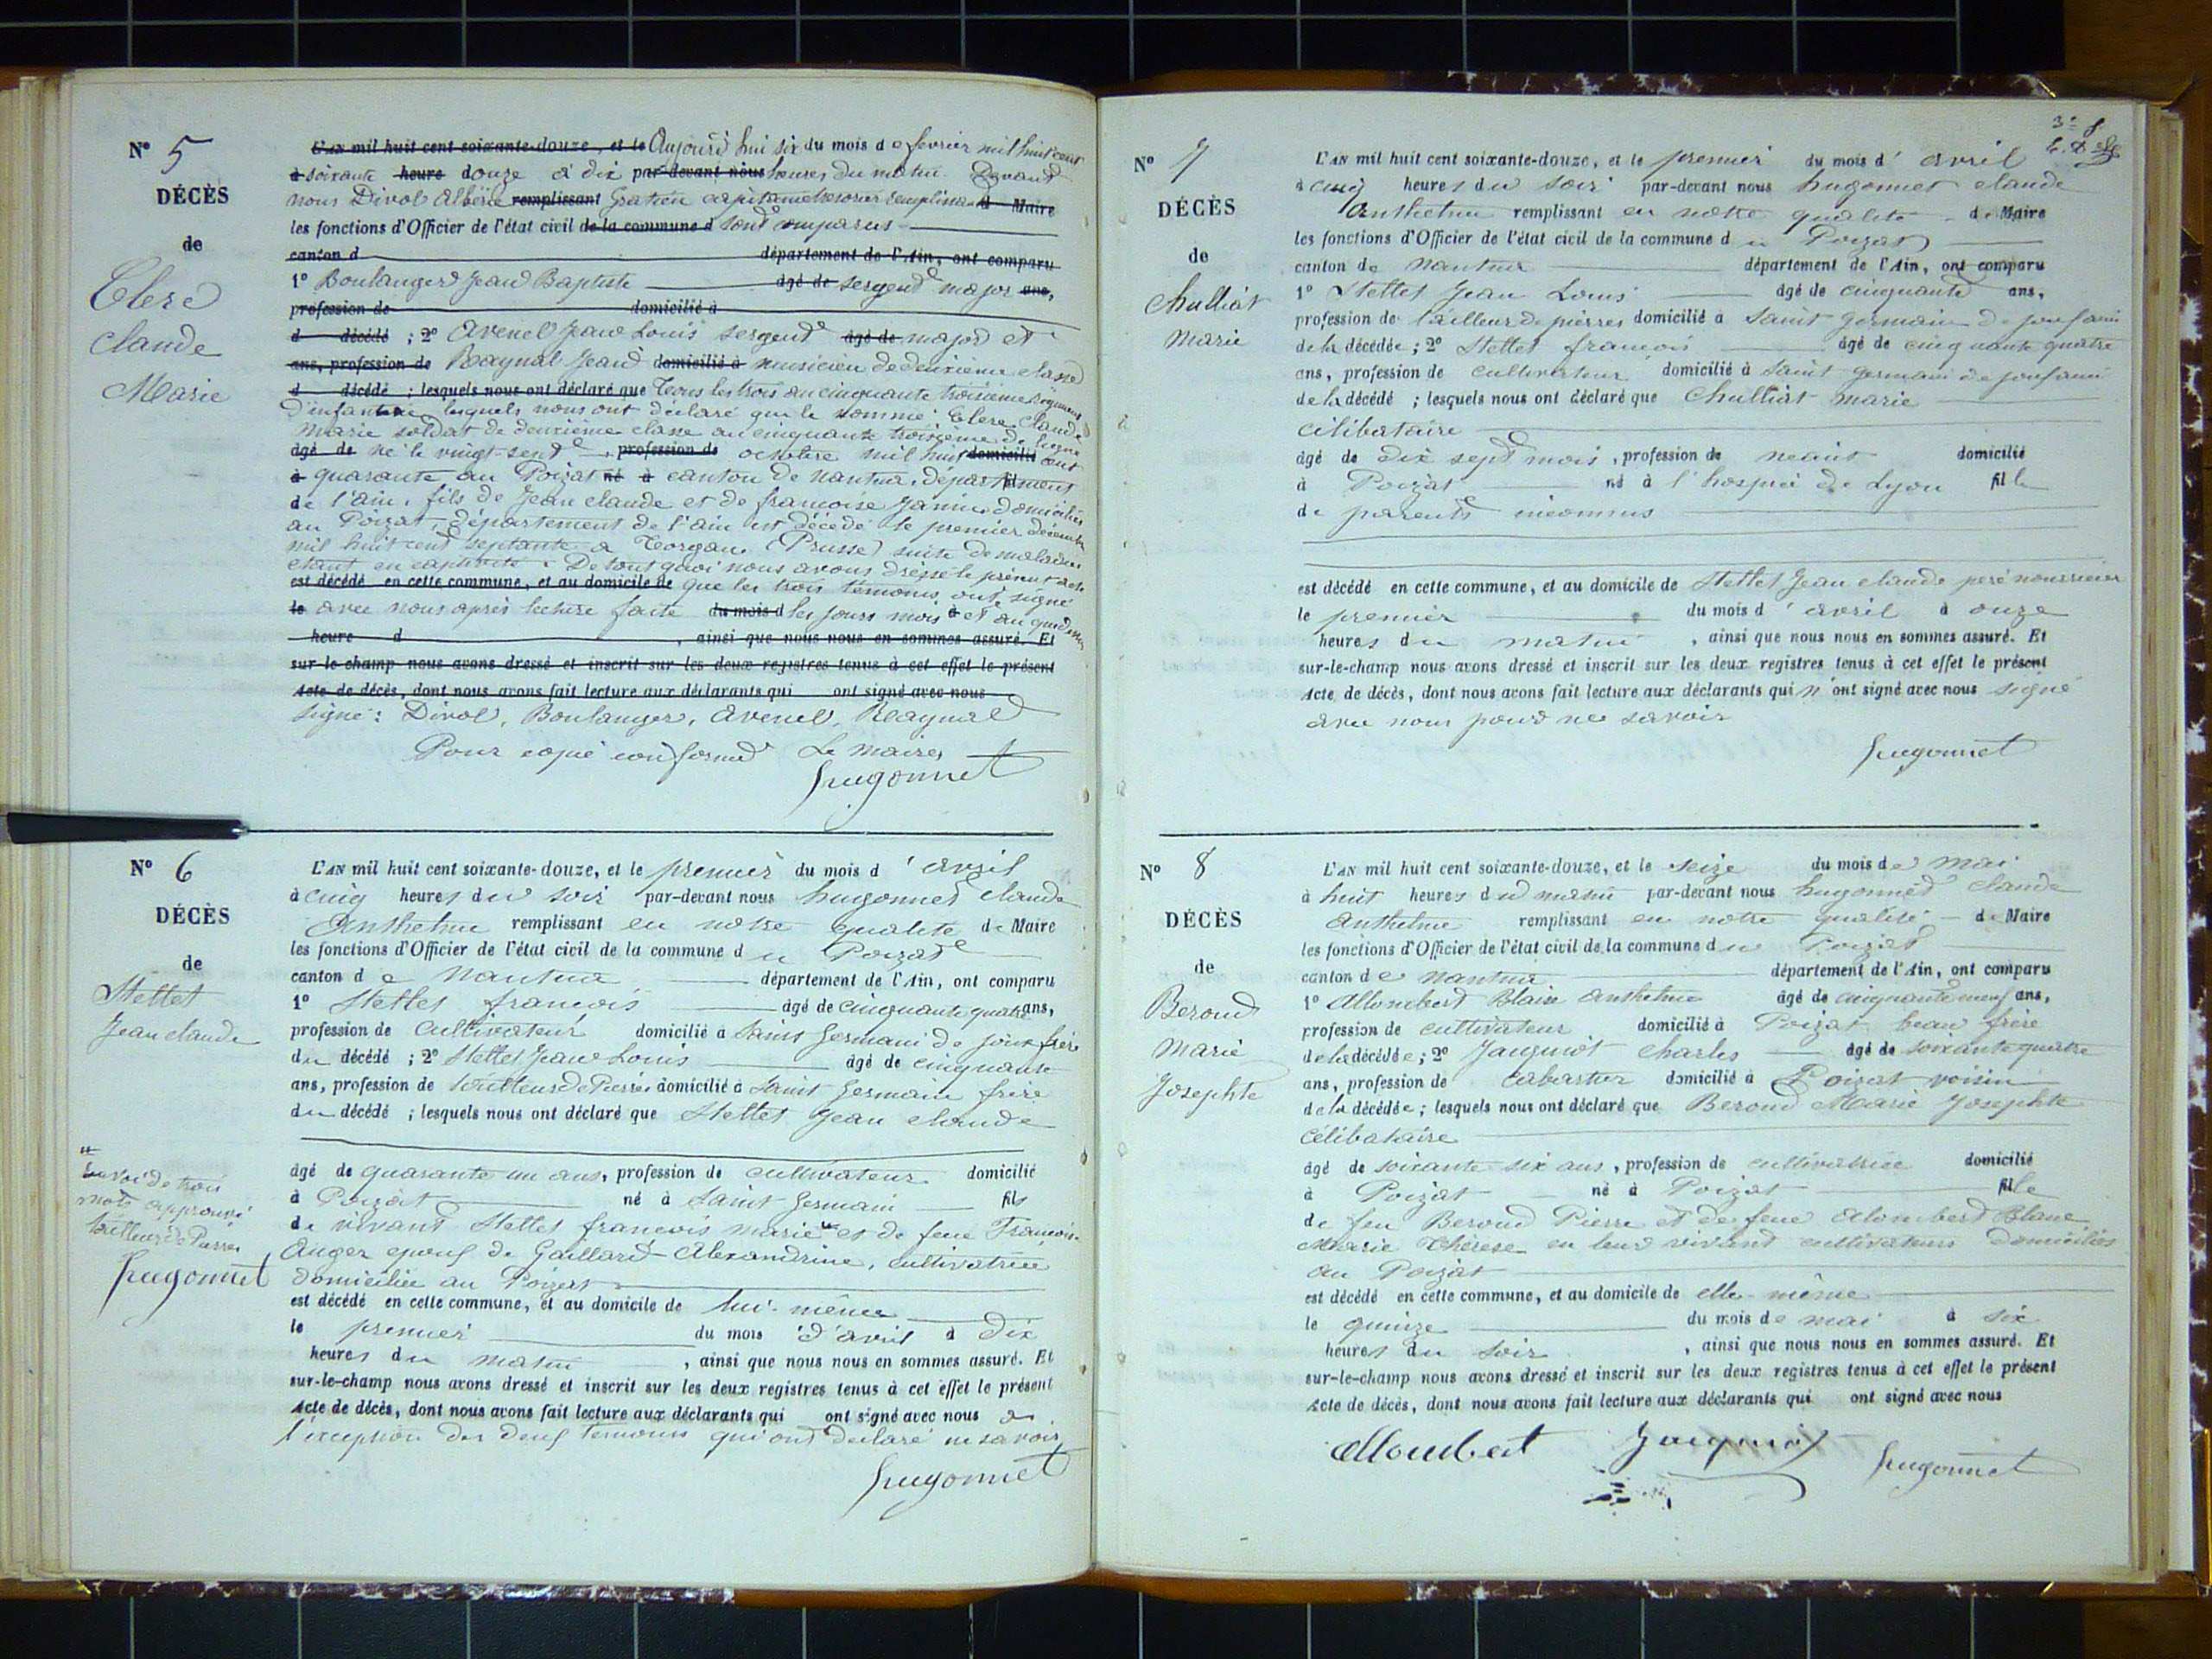 N° 5
DÉCÈS
de
Clerc
Claude
Marie
L'AN mil huit cent soixante-douze, et le Aujourd'hui six du mois de fevrier mil huit cent
à soixante heure douze à dix par-devant nous heures du matin. Devant
nous Divol Albéric remplissant Gratien capitaine trésorier remplissant d Maire
les fonctions d'Officier de l'état civil de la commune d sont comparus
canton d département de l'Ain, ont comparu
1° Boulanger Jean Baptiste âgé de sergent major ans,
profession de domicilié à
d décédé ; 2° Avenel Jean Louis sergent âgé de major et
ans, profession de Raynal Jean domicilié à musicien de deuxième classe
d décédé ; lesquels nous ont déclaré que Tous les trois au cinquante troisième Regiment
d'infanterie lesquels nous ont déclaré que le nommé : Clerc Claude
Marie soldat de deuxième classe au cinquante troisième de ligne
âgé de né le vingt-sept , profession de octobre mil huit domicilié cent
à quarante au Poizat né à canton de Nantua, département
de l'ain, fils de Jean Claude et de françoise Jannin domiciliés
au Poizat, département de l'ain est décédé le premier décembre
mil huit cent septante a Torgau (Prusse) suite de maladie
étant en captivité. De tout quoi nous avons dressé le présent acte
est décédé en cette commune, et au domicile de que les trois témoins ont signé
le avec nous après lecture faite du mois d les jours mois à et an que dessus
heure d , ainsi que nous nous en sommes assuré. Et
sur-le-champ nous avons dressé et inscrit sur les deux registres tenus à cet effet le présent
Acte de décès, dont nous avons fait lecture aux déclarants qui ont signé avec nous
signé : Divol, Boulanger, Avenel, Raynal
Pour copie conforme Le Maire
Hugonnet
N° 6
DÉCÈS
de
Stettet
Jean claude
L'AN mil huit cent soixante-douze, et le premier du mois d'avril
à cinq heures du soir par-devant nous hugonnet Claude
Anthelme remplissant en notre qualité de Maire
les fonctions d'Officier de l'état civil de la commune du Poizat
canton de Nantua département de l'Ain, ont comparu
1° Stettet françois âgé de cinquante quatre ans,
profession de Cultivateur domicilié à Saint Germain de joux frère
du décédé ; 2° Stettet Jean Louis âgé de cinquante
ans, profession de tailleur de Pierre domicilié à Saint Germain frère
du décédé ; lesquels nous ont déclaré que Stettet Jean claude
âgé de quarante un ans, profession de cultivateur domicilié
à Poizat né à Saint Germain fils
de vivant Stettet françois marie et de feue Françoise
Auger epoux de Gaillard Alexandrine, cultivatrice
domiciliée au Poizat
est décédé en cette commune, et au domicile de lui-même
le premier du mois d'avril à dix
heures du matin , ainsi que nous nous en sommes assuré. Et
sur-le-champ nous avons dressé et inscrit sur les deux registres tenus à cet effet le présent
Acte de décès, dont nous avons fait lecture aux déclarants qui ont signé avec nous a
l'exception des deux temoins qui ont déclaré ne savoir
Hugonnet
Renvoi de trois
mots approuvé
tailleur de Pierre
Hugonnet
N° 7
DÉCÈS
de
Chulliat
Marie
L'AN mil huit cent soixante-douze, et le premier du mois d'avril
à cinq heures du soir par-devant nous hugonnet claude
Anthelme remplissant en notre qualité de Maire
les fonctions d'Officier de l'état civil de la commune du Poizat
canton de Nantua département de l'Ain, ont comparu
1° Stettet Jean Louis âgé de cinquante ans,
profession de tailleur de pierres domicilié à Saint Germain de joux
de la décédée ; 2° Stettet françois âgé de cinquante quatre
ans, profession de cultivateur domicilié à Saint Germain de joux
de la décédé ; lesquels nous ont déclaré que Chulliat Marie
célibataire
âgé de dix sept mois, profession de neant domicilié
à Poizat né à l'hospice de Lyon fille
de parents inconnus
est décédé en cette commune, et au domicile de Stettet Jean claude père nourricier
le premier du mois d'avril à onze
heures du matin , ainsi que nous nous en sommes assuré. Et
sur-le-champ nous avons dressé et inscrit sur les deux registres tenus à cet effet le présent
Acte de décès, dont nous avons fait lecture aux déclarants qui n'ont signé avec nous signé
avec nous pour ne savoir
Hugonnet
N° 8
DÉCÈS
de
Beroud
Marie
Josephte
L'AN mil huit cent soixante-douze, et le seize du mois de Mai
à huit heures du matin par-devant nous hugonnet Claude
Anthelme remplissant en notre qualité de Maire
les fonctions d'Officier de l'état civil de la commune du Poizat
canton de Nantua département de l'Ain, ont comparu
1° Allombert Blaise Anthelme âgé de cinquante neuf ans,
profession de cultivateur domicilié à Poizat beau frère
de la décédée ; 2° Jacquiot Charles âgé de soixante quatre
ans, profession de cabartier domicilié à Poizat voisin
de la décédée ; lesquels nous ont déclaré que Beroud Marie Josephte
célibataire
âgé de soixante six ans, profession de cultivatrice domicilié
à Poizat né à Poizat fille
de feu Beroud Pierre et de feue Alombert Blanc
Marie Thérese en leur vivant cultivateurs domiciliés
au Poizat
est décédé en cette commune, et au domicile de elle-même
le quinze du mois de mai à six
heures du soir , ainsi que nous nous en sommes assuré. Et
sur-le-champ nous avons dressé et inscrit sur les deux registres tenus à cet effet le présent
Acte de décès, dont nous avons fait lecture aux déclarants qui ont signé avec nous
Allombert Jacquiot Hugonnet